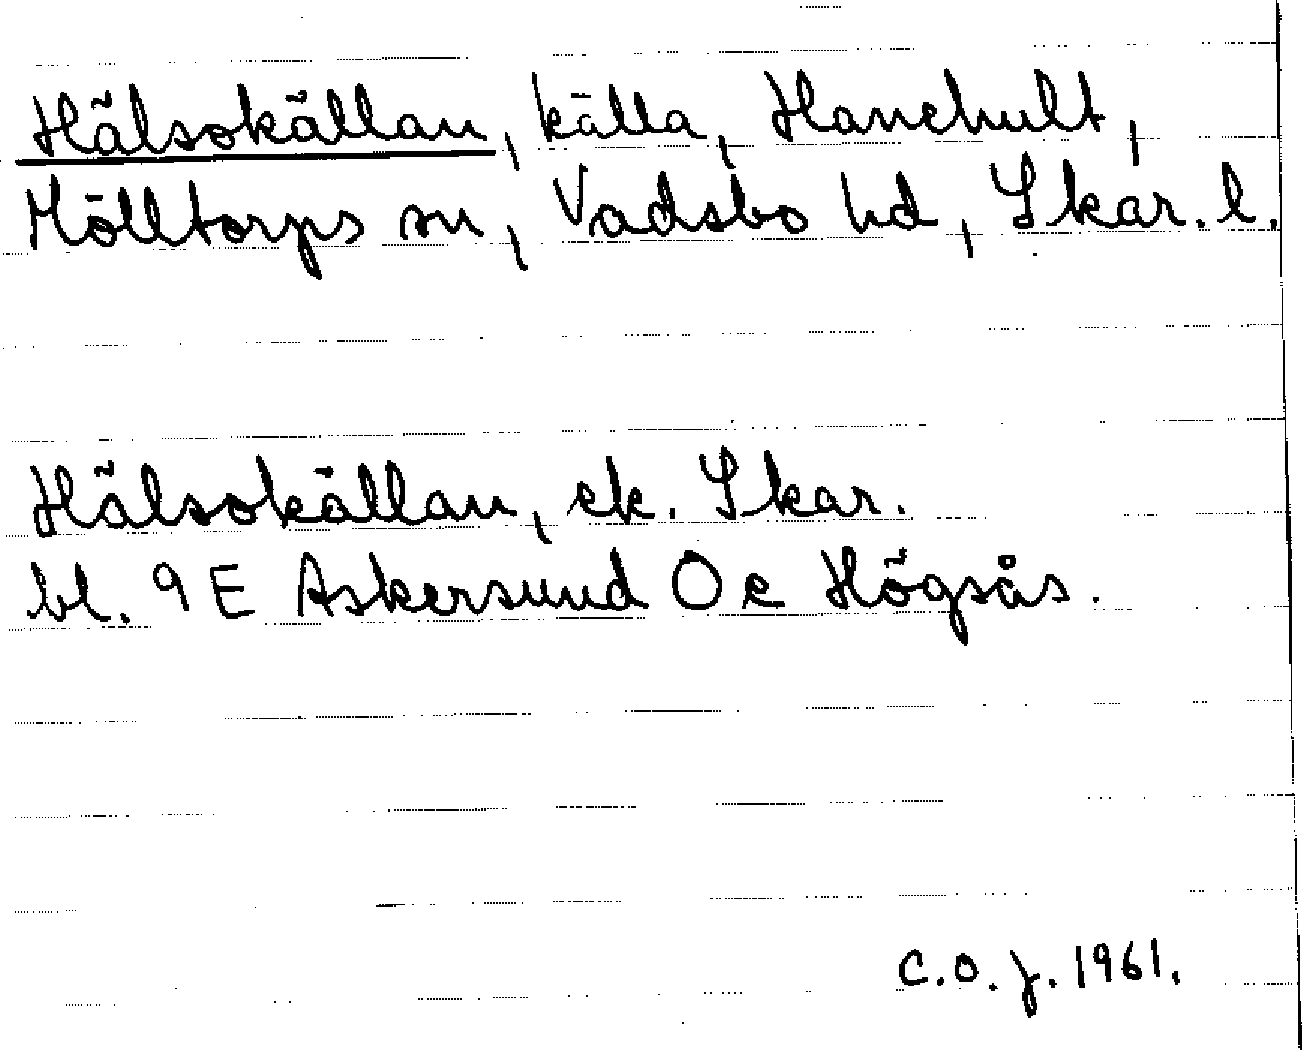 Hälsokällan, källa, Hanehult,
Mölltorps sn, Vadsbo hd, Skar. l.
Hälsokällan, ek. Skar.
bl. 9 E Askersund O e Högsås.
C.O.J. 1961.